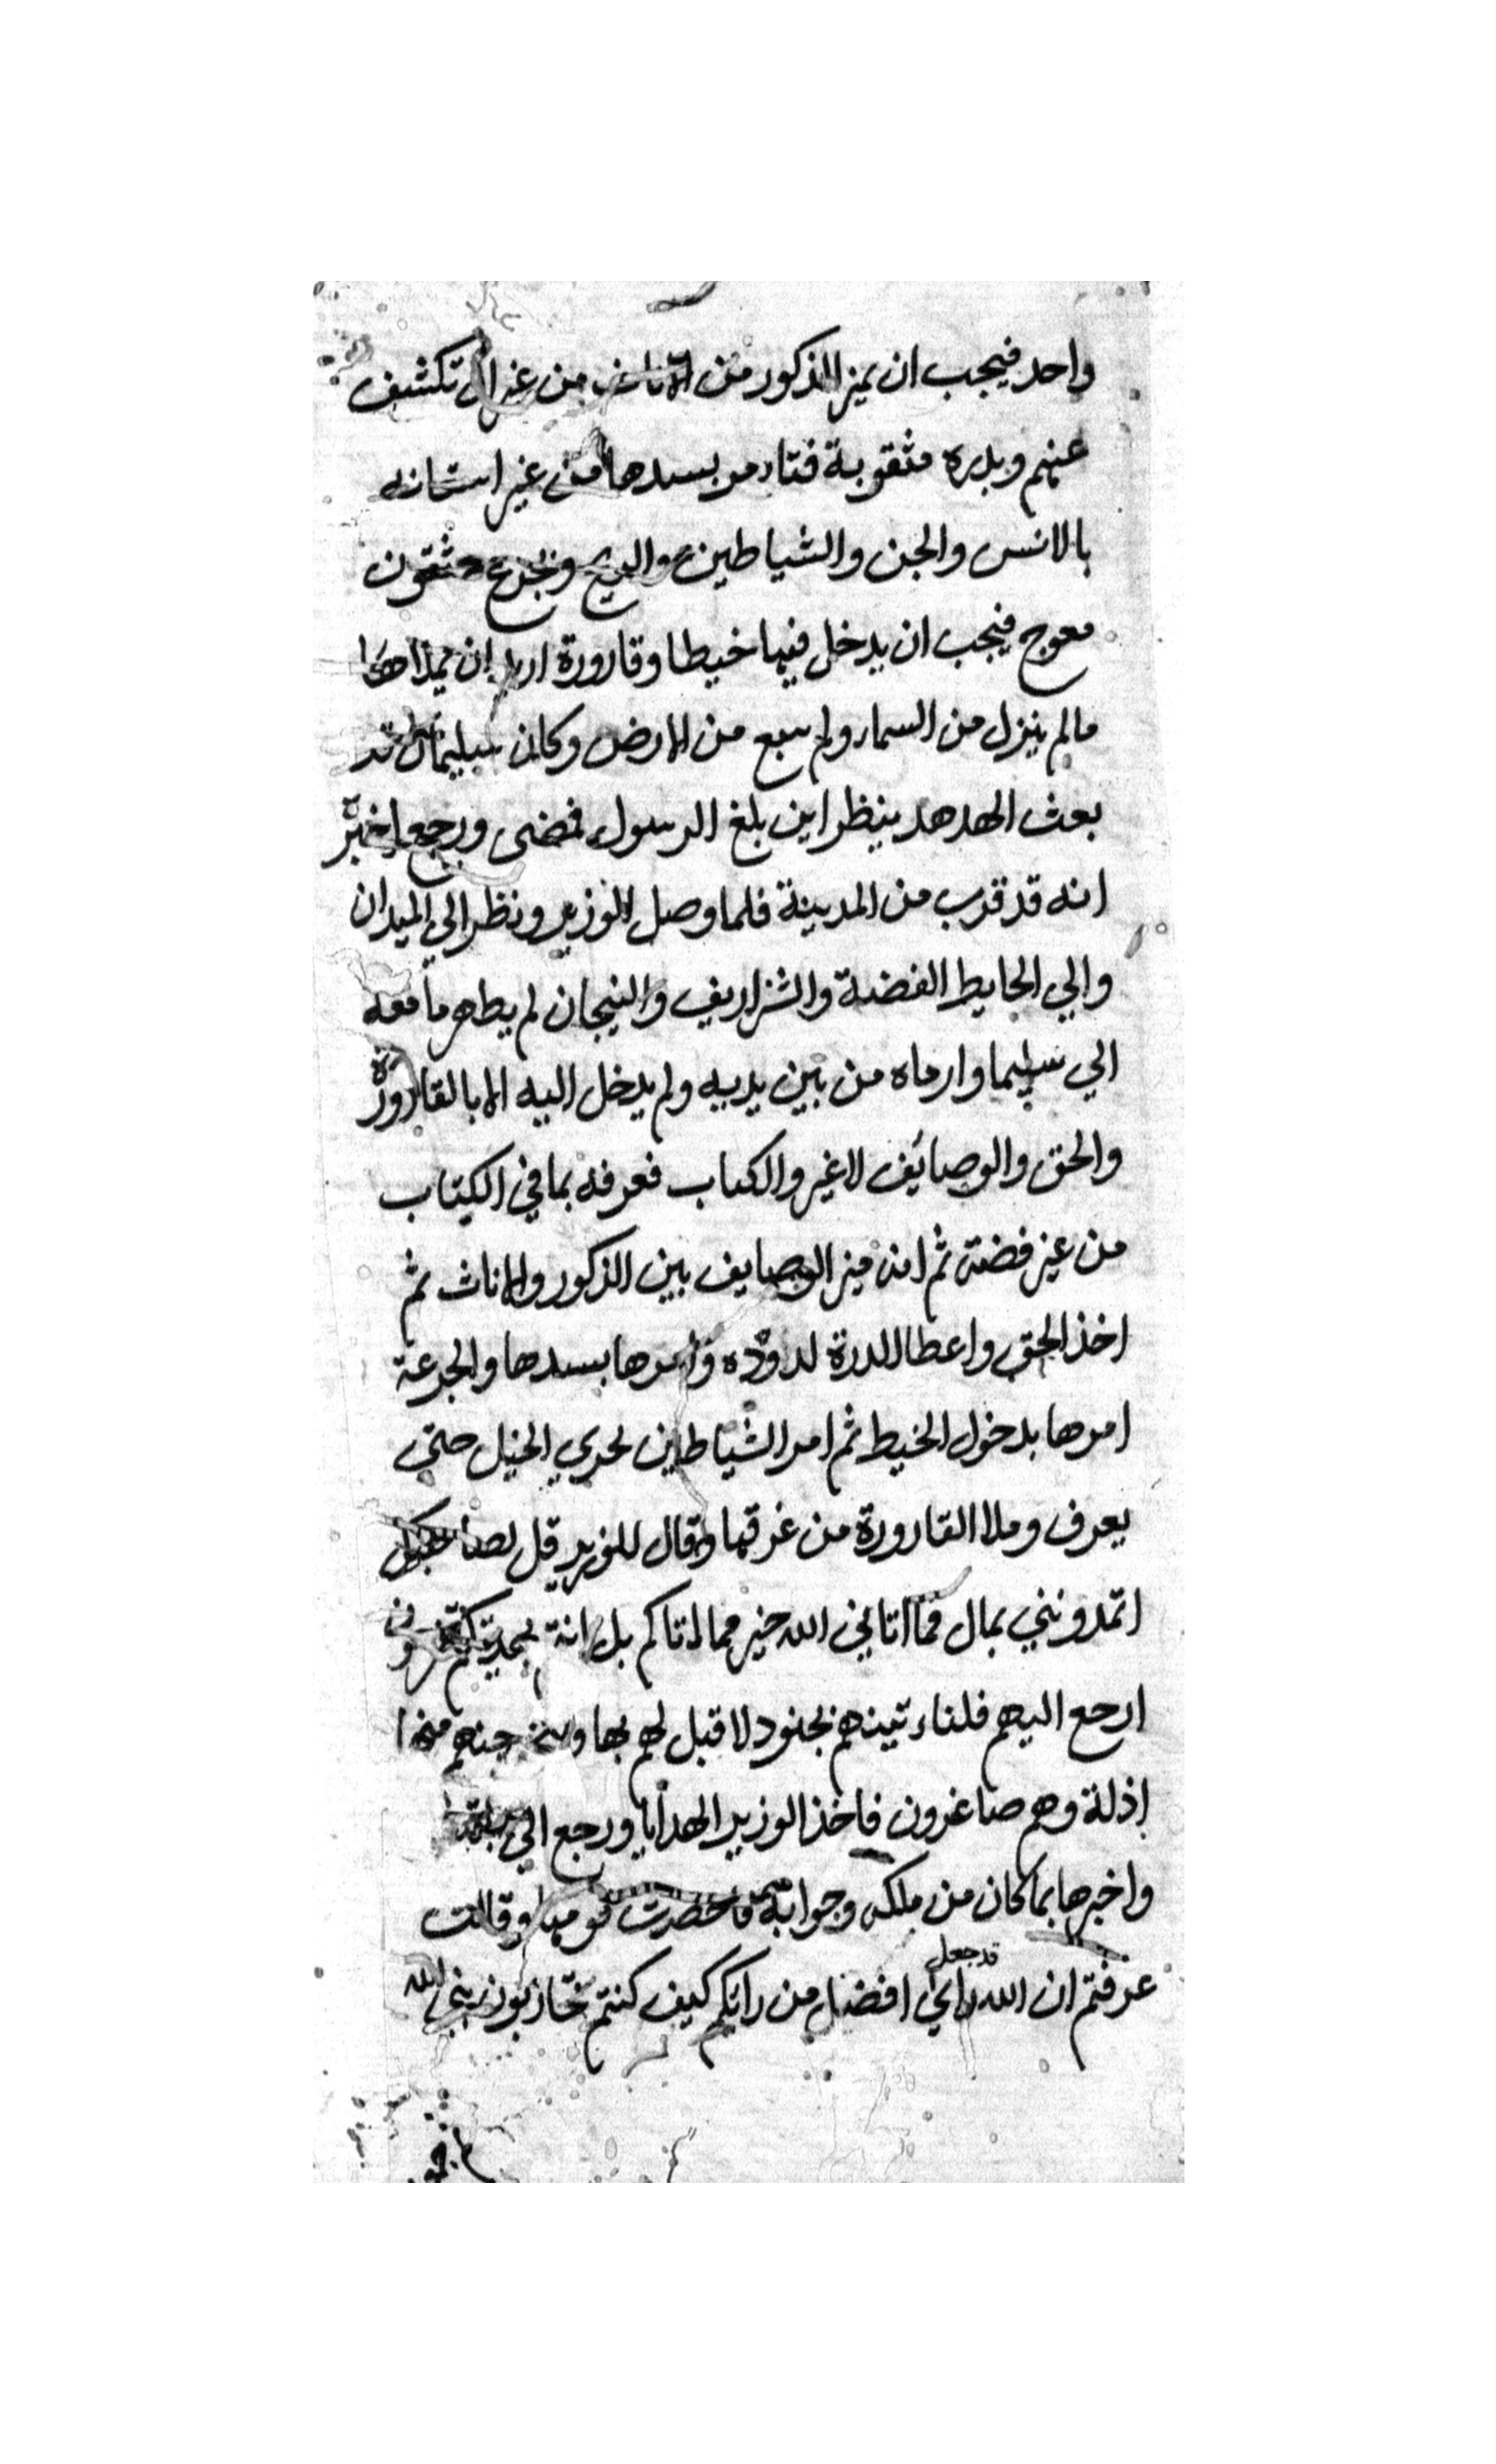 واحد فيجب ان يميز الذكور من الاناث من غير ان تكشف
عنهم وبدره مثقوبة فتامر بسدها من غير استعانه
بالانس والجن والشياطين والريح وبجزع مثقون
معوج فيجب ان يدخل فيها خيطا وقارورة اريد ان يملاها
مالم ينزل من السما ولم ينبع من الارض وكان سليمان قد
بعث الهدهد ينظر اين بلغ الرسول فمضى ورجع اخبر
انه قد قرب من المدينة فلما وصل الوزير ونظر الي الميدان
والي الحايط الفضة والشراريف والتيجان لم يظهر ما معه
الي سليما وارماه من بين يديه ولم يدخل اليه الا بالقارورة
والحق والوصائف لا غير والكتاب فعرفه بما في الكتاب
من غير فضته ثم انه ميز الوصايف بين الذكور والاناث ثم
اخذ الحق واعطا الدرة لدوده وامرها بسدها والجزعة
امرها بدخول الخيط ثم امر الشياطين لجري الخيل حتي
يعرف وملا القارورة من عرقها وقال للوزير قل لصاحبك
اتمدونني بمال فما اتاني الله خير مما اتاكم بل انتم بهديتكم تفرحون
ارجع اليهم فلناء تينهم بجنود لا قبل لهم بها ولنخرجنهم منها
اذلة وهم صاغرون فاخذ الوزير الهدايا ورجع الي بلقيس
واخبرها بما كان من ملكه وجوابه فاحضرت قومها وقالت
عرفتم ان الله قد جعل رايي افضل من رايكم كيف كنتم تحاربون نبي الله